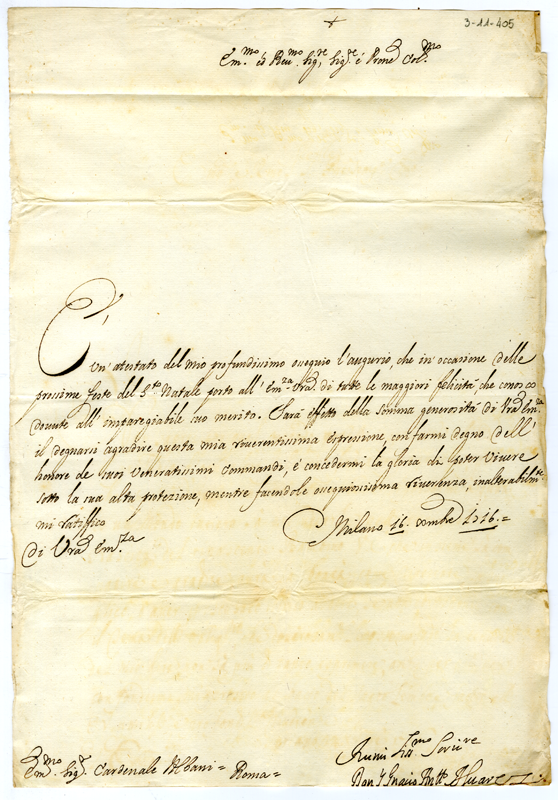 3-11-405
Em.mo é Reu.mo Sig.re Sig.re é Prone Col.mo
È un' atestato del mio profundissimo ossequio l'augurio, che in' occasione delle
prossime feste del S.to Natale porto all' Em.za Vra di tutte le maggiori felicità che conosco
dovute all' impareggiabile suo merito. Sarà effetto della somma generosità di Vra Em.za
il degnarsi agradire questa mia riverentissima espressione, con farmi degno dell'
honore de suoi Veneratissimi Commandi, é concedermi la gloria di poter Vivere
sotto la sua alta protezione, mentre facendole ossequiosissima riverenza, inalterabilm.te
mi ratiffico
Milano 16. Xmbre 1716.=
di Vra Em.za
Em.mo Sig.r Cardenale Albani = Roma =
Seru.re
Don Ignacio Alvarez